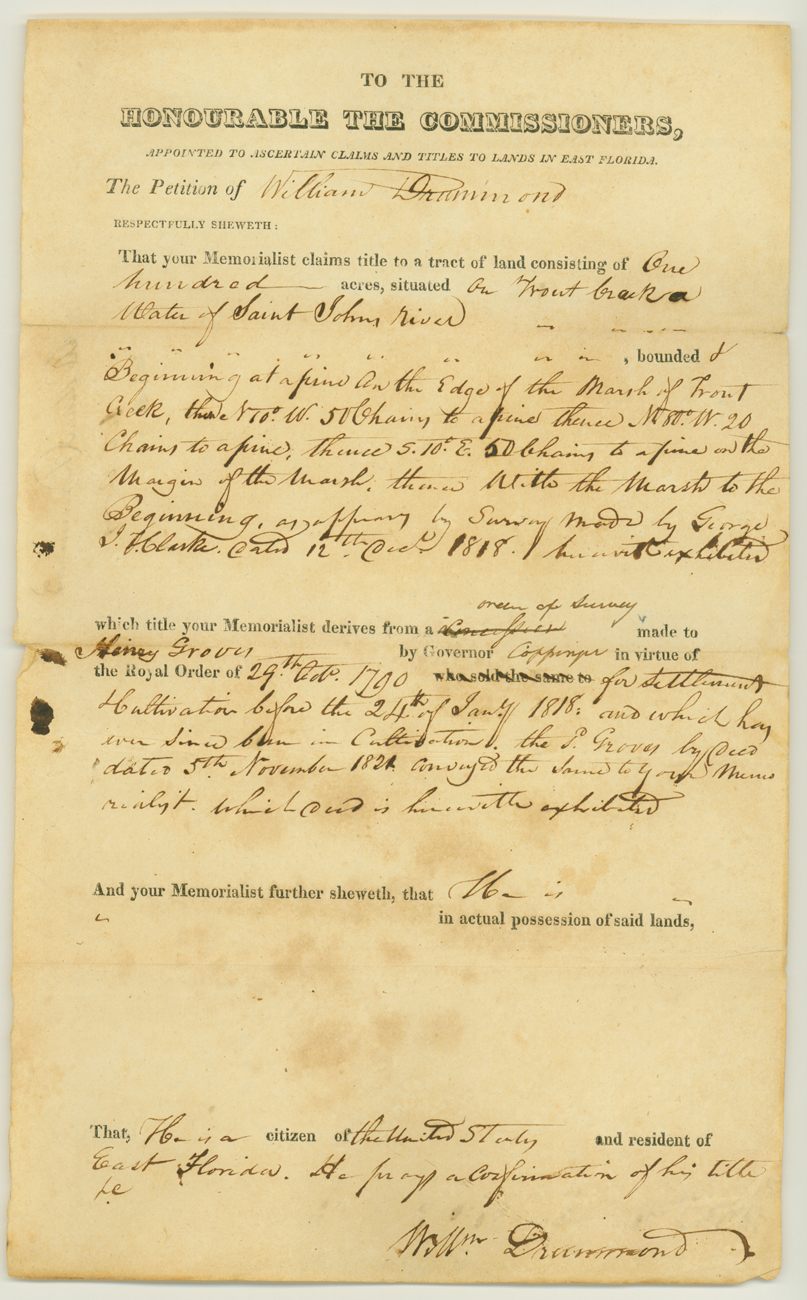 TO THE
HONOURABLE THE COMMISSIONERS,
APPOINTED TO ASCERTAIN CLAIMS AND TITLES TO LANDS IN EAST FLORIDA.
The Petition of William Drummond
RESPECTFULLY SHEWETH:
That your Memorialist claims title to a tract of land consisting of One
hundred acres, situated on Trout Creek a
Water of Saint Johns river
, bounded &
Beginning at a pine on the Edge of the Marsh of Trout
Creek, thence N 10º. W. 50 Chains to a pine thence N. 80º. W. 20
Chains to a pine, thence S. 10º. E. 50 Chains to a pine on the
Margin of the Marsh, thence With the Marsh to the
Beginning, as appears by Survey made by George
J. F. Clarke. dated 12th Decr. 1818. herewith exhibited
order of Survey
which title your Memorialist derives from a made to
Henry Groves by Governor Coppinger in virtue of
the Royal Order of 29th Octr. 1790 who sold the same to for settlement
& cultivation before the 24th of Jany 1818: and which has
ever since been in Cultivation. the sd. Groves by deed
dated 5th November 1821 conveyed the same to your Memo
rialist. which deed is herewith exhibited
And your Memorialist further sheweth, that He is
in actual possession of said lands,
That, He is a citizen of the United States and resident of
East Florida. He prays a confirmation of his title
&c
Willm. Drummond